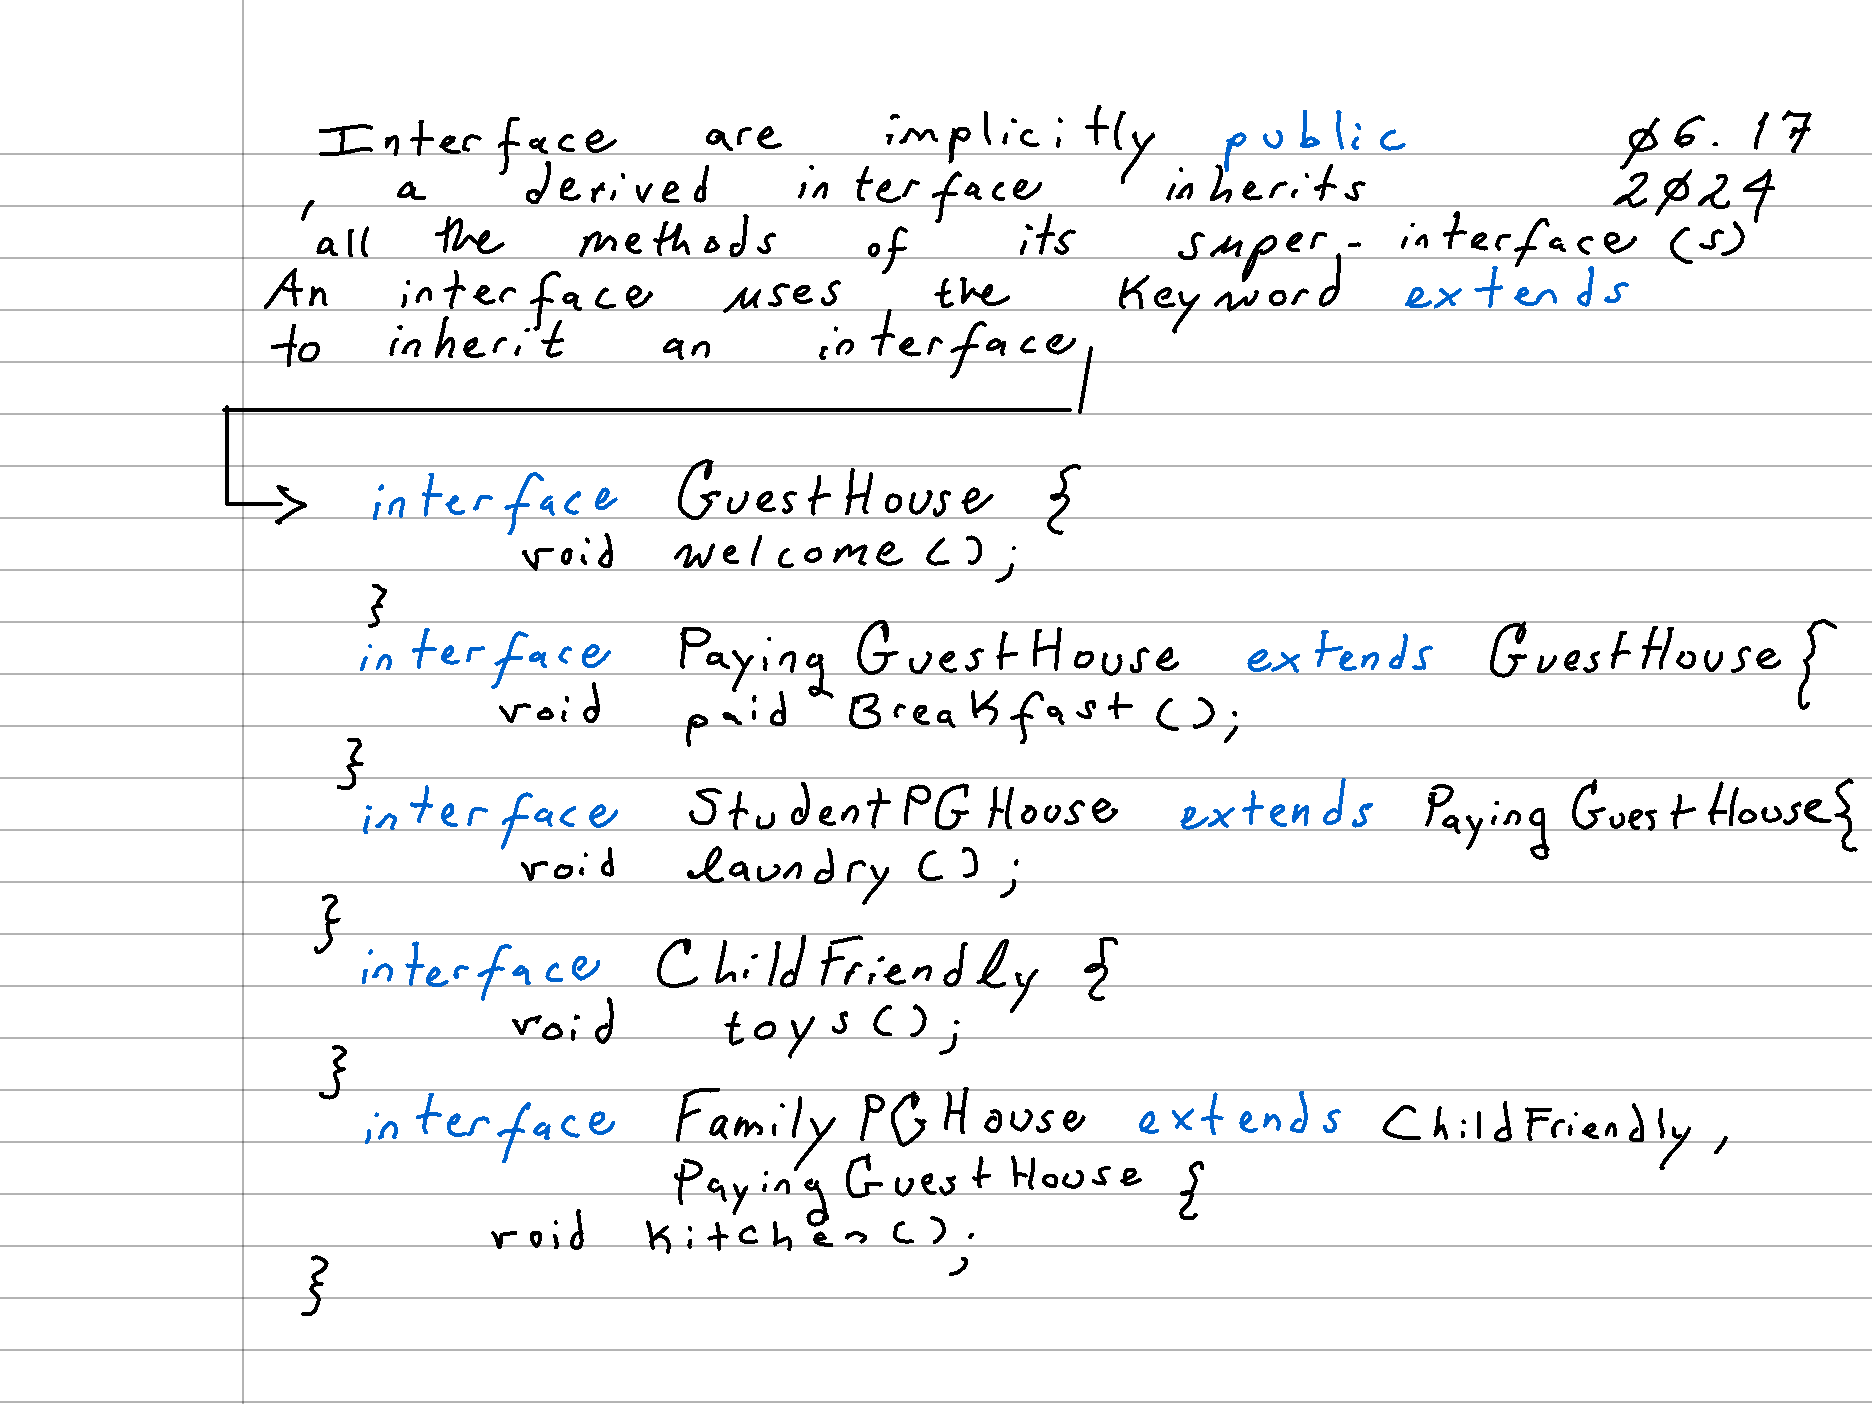 Interface are implicitly public 06.17
, a derived interface inherits 2024
all the methods of its super-interface(s)
An interface uses the keyword extends
to inherit an interface,
interface GuestHouse {
void welcome();
}
interface PayingGuestHouse extends GuestHouse {
void paidBreakfast();
}
interface StudentPGHouse extends PayingGuestHouse {
void laundry();
}
interface ChildFriendly {
void toys();
}
interface FamilyPGHouse extends ChildFriendly,
PayingGuestHouse {
void kitchen();
}